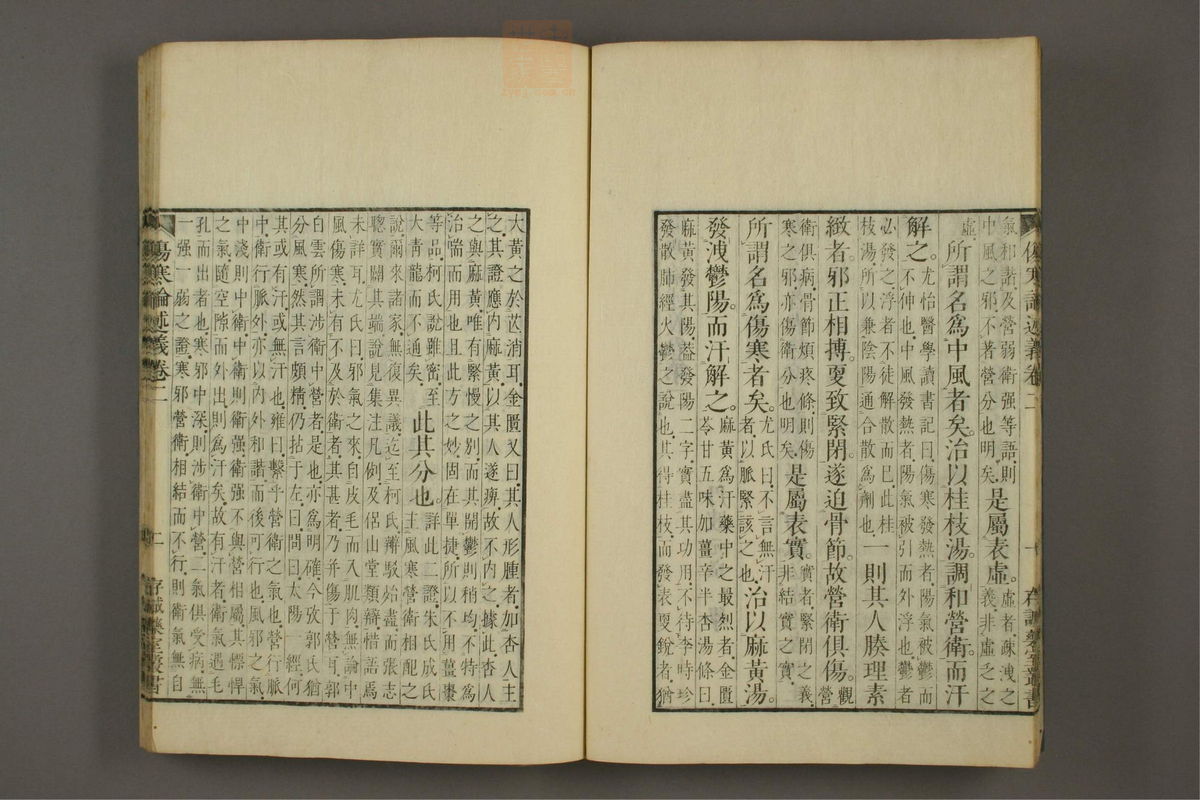 氣相諸及營弱衛强等語則
中風之邪不著營分也明矣
是屬表虛
虛者疎洩之
義非虛乏之
虛
所謂名爲中風者矣治以桂枝湯調和營衛而汗
解之
尤怡醫學讀書記曰傷寒發熱者陽氣被鬱而
不伸也中風發熱者陽氣被引而外浮也鬱者
必發之浮者不徒解散而已此桂
枝湯所以兼陰陽通合散爲劑也
一則其人腠理素
緻者邪正相搏更致緊閉遂迫骨節故營衛俱傷
觀營
衛俱病骨節煩疼條則傷
寒之邪亦傷衛分也明矣
是屬表實
實者緊閉之義
非結實之實
所謂名爲傷寒者矣
尤氏曰不言無汗
者以脈緊該之也
治以麻黃湯
發洩鬱陽而汗解之
麻黃爲汗藥中之最烈者金匱
苓甘五味加薑辛半杏湯條曰
麻黃發其陽葢發陽二字實盡其功用不待李時珍
發散肺經火鬱之說也其得桂枝而發表更銳者猶
大黃之於芒消耳金匱又曰其人形腫者加杏人主
之其證應内麻黃以其人遂痹故不内之據此杏人
之與麻黃唯有緊慢之別而其開鬱則稍均不特爲
治喘而用也且此方之妙固在單捷所以不用薑棗
等品柯氏說雖密至
大青龍而不通矣
此其分也
詳此二證朱氏成氏
主風寒營衛相配之
說爾來諸家無復異議迄至柯氏辨駁始盡而張志
聰實闢其端說見集注凡例及侶山堂類辯惜語焉
未詳耳尤氏曰邪氣之來自皮毛而入肌肉無論中
風傷寒未有不及於衛者其甚者乃并傷于營耳郭
白雲所謂涉衛中營者是也亦爲明確今攷郭氏猶
分風寒然其言頗精仍拈于左曰問曰太陽一經何
其或有汗或無汗也雍曰繫乎營衛之氣也營行脈
中衛行脈外亦以内外和諧而後可行也風邪之氣
中淺則中衛中衛則衛强衛强不與營相屬其慓悍
之氣隨空隙而外出則爲汗矣故有汗者衛氣遇毛
孔而出者也寒邪中深則涉衛中營二氣俱受病無
一强一弱之證寒邪營衛相結而不行則衛氣無自
傷寒論述義卷二
二
存誠藥室叢書